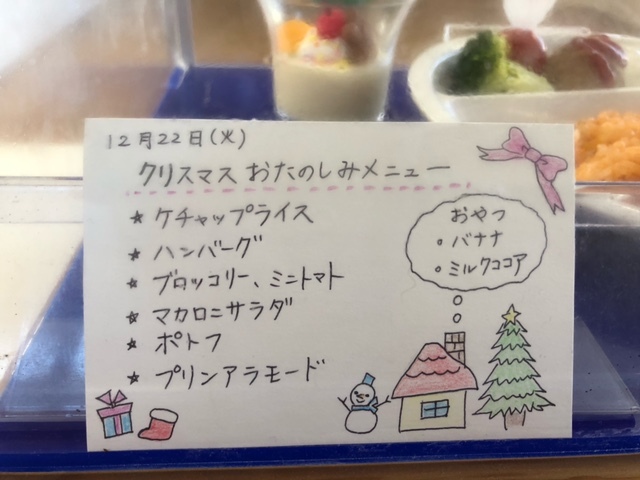 12月22日(火)
クリスマス おたのしみメニュー
★ ケチャップライス
★ ハンバーグ
★ ブロッコリー、ミニトマト
★ マカロニサラダ
★ ポトフ
★ プリンアラモード
おやつ
・バナナ
・ミルクココア